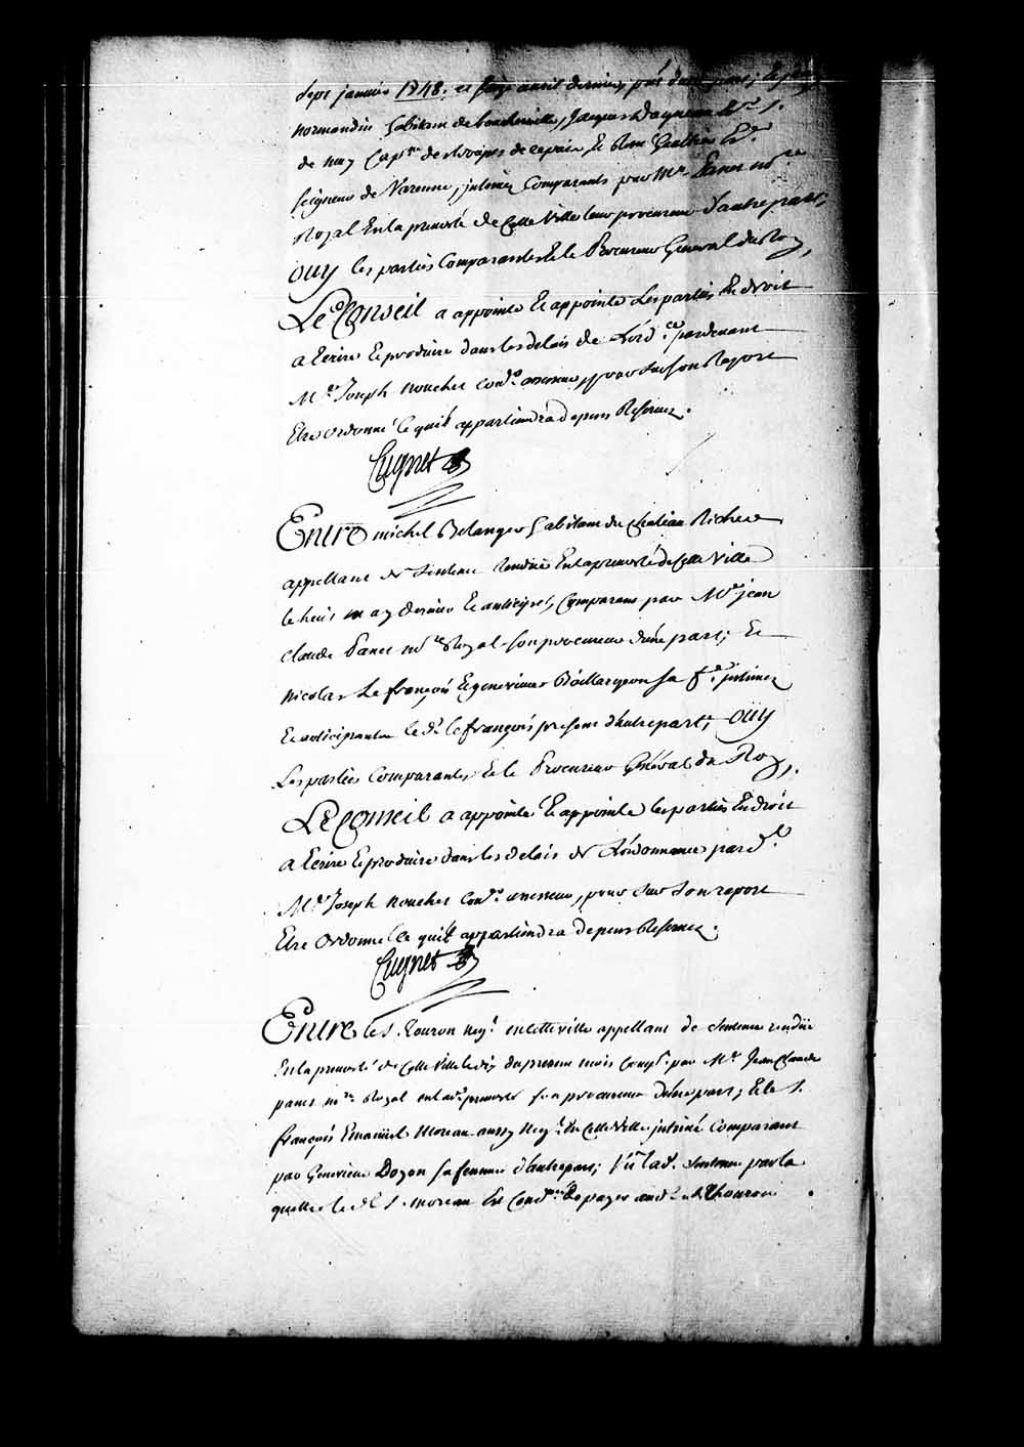 Sept janvier 1748. et seize avril dernier, par d'une part; Et
normandin habitant de boucherville, Jacques Dagneau Er. S.
de muy Capne. des troupes de ce païs, Et René Gaultier Er.
seigneur de Varenne, jntimés Comparants par Me. Panet nore.
Royal En la prevosté de Cette Ville leur procureur d'autre part;
Ouy les parties Comparantes Et le Procureur General du Roy,
Le Conseil a appointé Et appointe les parties En droit
a Ecrire Et produire dans les delais de L'ord.ce pardevant
Me. Joseph nouchet Coner. assesseur, pour sur son Raport
Etre ordonné ce qu'il appartiendra depens Reservez.
Cugnet
Entre michel Belanger habitant du Chateau Richer
appellant de Sentence Renduë En la prevosté de Cette Ville
le huit may dernier Et anticipé, Comparant par Me. jean
Claude Panet nore. Royal son procureur d'une part; Et
nicolas Le françois Et genevieve Baillargeon sa fe. jntimez
Et anticipants le d. le françois present d'autre part; Oüy
Les parties Comparantes Et le Procureur Général du Roy,
Le Conseil a appointé Et appointe les parties En droit
a Ecrire Et produire dans les delais de L'ordonnance pard.t
Me. Joseph nouchet Coner. assesseur, pour sur Son raport
Etre Ordonné Ce qu'il appartiendra depens Reservez.
Cugnet
Entre le S. Touron neg.t en cette ville appellant de Sentence rendüe
En la prevosté de Cette Ville le dix du present mois Comp.t par Me. Jean Claude
panet nre. Royal en lad. prevosté son procureur d'une part; Et le S.
françois Emanüel Moreau aussy Neg.t En Cette Ville jntimé Comparant
par Genevieve Doyon sa femme d'autre part; Vû lad. Sentence par la
quelle le dt S. moreau Est Condné. de payer aud. Thouron